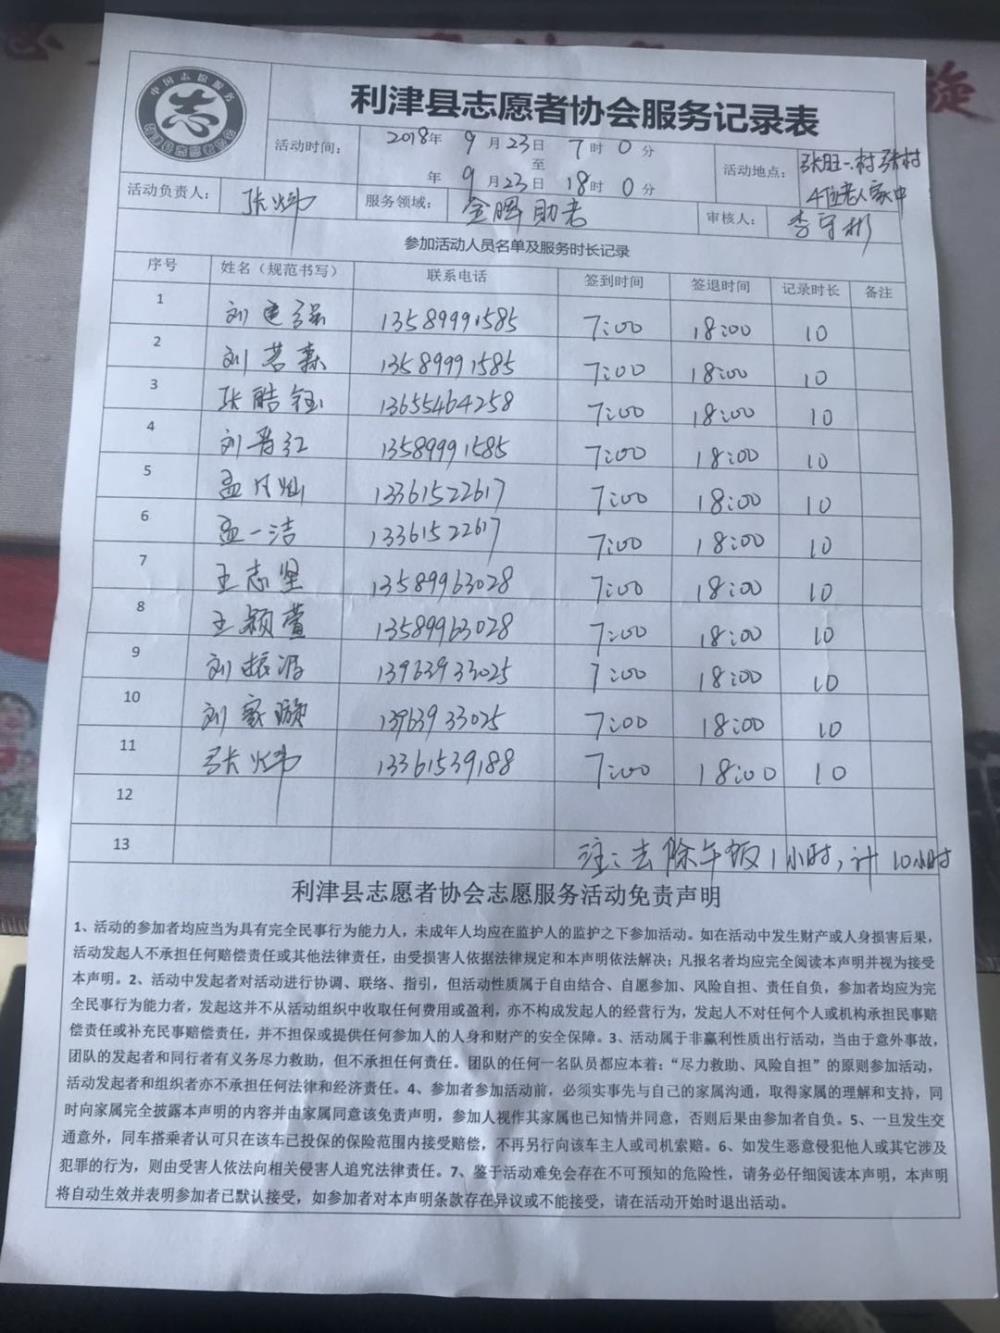 中国志愿服务
志
利津县志愿者协会服务记录表
活动时间： 2018年 9月23日 7时 0分
至
年 9月23日 18时 0分
活动地点： 张旺一村 张村
4位老人家中
活动负责人： 张炜 服务领域： 金晖助老 审核人： 李守彬
参加活动人员名单及服务时长记录
序号 姓名（规范书写） 联系电话 签到时间 签退时间 记录时长 备注
1 刘建强 13589991585 7:00 18:00 10
2 刘茗森 13589991585 7:00 18:00 10
3 张皓钰 13655464258 7:00 18:00 10
4 刘晋红 13589991585 7:00 18:00 10
5 孟凡灿 13361522617 7:00 18:00 10
6 孟一洁 13361522617 7:00 18:00 10
7 王志坚 13589963028 7:00 18:00 10
8 王颖萱 13589963028 7:00 18:00 10
9 刘振 13963933025 7:00 18:00 10
10 刘家璇 13963933025 7:00 18:00 10
11 张炜 13361539188 7:00 18:00 10
12
13 注：去除午饭1小时，计10小时
利津县志愿者协会志愿服务活动免责声明
1、活动的参加者均应当为具有完全民事行为能力人，未成年人均应在监护人的监护之下参加活动。如在活动中发生财产或人身损害后果，
活动发起人不承担任何赔偿责任或其他法律责任，由受损害人依据法律规定和本声明依法解决；凡报名者均应完全阅读本声明并视为接受
本声明。2、活动中发起者对活动进行协调、联络、指引，但活动性质属于自由结合、自愿参加、风险自担、责任自负，参加者均应为完
全民事行为能力者，发起这并不从活动组织中收取任何费用或盈利，亦不构成发起人的经营行为，发起人不对任何个人或机构承担民事赔
偿责任或补充民事赔偿责任，并不担保或提供任何参加人的人身和财产的安全保障。3、活动属于非赢利性质出行活动，当由于意外事故，
团队的发起者和同行者有义务尽力救助，但不承担任何责任。团队的任何一名队员都应本着：“尽力救助、风险自担”的原则参加活动，
活动发起者和组织者亦不承担任何法律和经济责任。4、参加者参加活动前，必须实事先与自己的家属沟通，取得家属的理解和支持，同
时向家属完全披露本声明的内容并由家属同意该免责声明，参加人视作其家属也已知情并同意，否则后果由参加者自负。5、一旦发生交
通意外，同车搭乘者认可只在该车已投保的保险范围内接受赔偿，不再另行向该车主人或司机索赔。6、如发生恶意侵犯他人或其它涉及
犯罪的行为，则由受害人依法向相关侵害人追究法律责任。7、鉴于活动难免会存在不可预知的危险性，请务必仔细阅读本声明，本声明
将自动生效并表明参加者已默认接受，如参加者对本声明条款存在异议或不能接受，请在活动开始时退出活动。